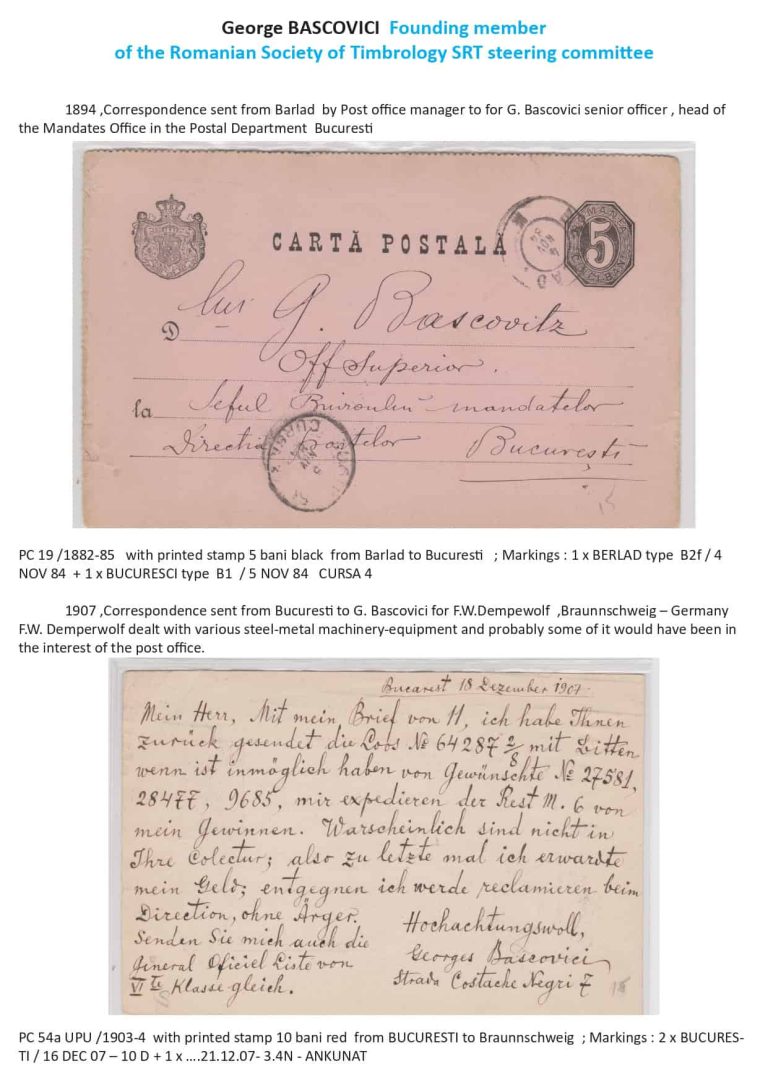 George BASCOVICI Founding member
of the Romanian Society of Timbrology SRT steering committee
1894 ,Correspondence sent from Barlad by Post office manager to for G. Bascovici senior officer , head of
the Mandates Office in the Postal Department Bucuresti
CARTĂ POSTALĂ
ROMANIA
5
D lui G. Bascovitz
Off Superior.
la Seful Biuroului mandatelor
Directia Postelor Bucuresti
PC 19 /1882-85 with printed stamp 5 bani black from Barlad to Bucuresti ; Markings : 1 x BERLAD type B2f / 4
NOV 84 + 1 x BUCURESCI type B1 / 5 NOV 84 CURSA 4
1907 ,Correspondence sent from Bucuresti to G. Bascovici for F.W.Dempewolf ,Braunnschweig – Germany
F.W. Demperwolf dealt with various steel-metal machinery-equipment and probably some of it would have been in
the interest of the post office.
Bucarest 18 Dezember 1907.
Mein Herr, Mit mein Brief von 11, ich habe Ihnen
zurück gesendet die Loos № 64287 2/8 mit Bitten
wenn ist inmöglich haben von Gewünschte № 27581,
28477, 9685, mir expedieren der Rest M. 6 von
mein Gewinnen. Warscheinlich sind nicht in
Ihre Colectur; also zu letzte mal ich erwarste
mein Geld; entgegnen ich werde reclamieren beim
Direction, ohne Ärger.
Hochachtungswoll,
Senden Sie mich auch die
Georges Bascovici
General Oficiel Liste von
Strada Costache Negri 7
VI te Klasse gleich.
PC 54a UPU /1903-4 with printed stamp 10 bani red from BUCURESTI to Braunnschweig ; Markings : 2 x BUCURES-
TI / 16 DEC 07 – 10 D + 1 x ....21.12.07- 3.4N - ANKUNAT